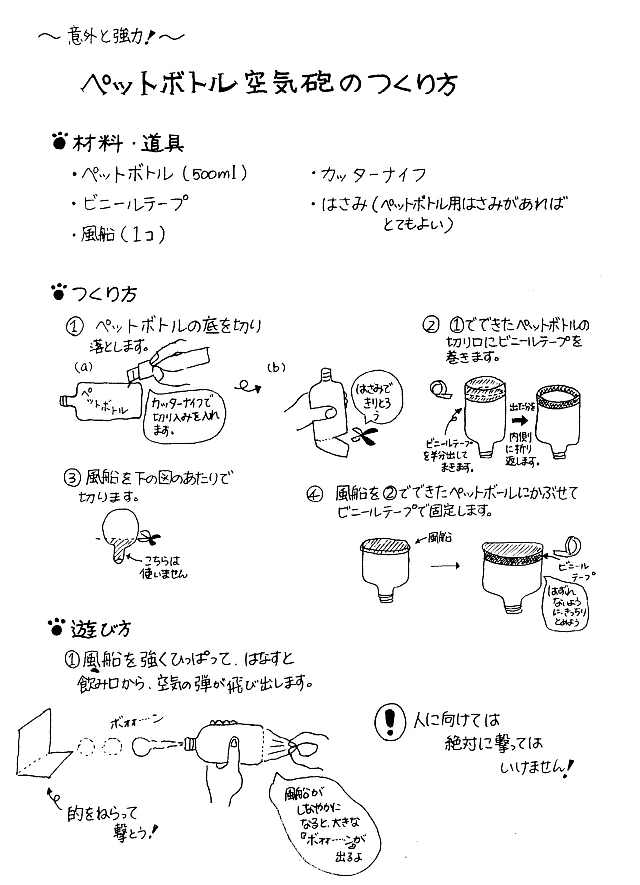 ～意外と強力！～
ペットボトル空気砲のつくり方
材料・道具
・ペットボトル（500ml）
・ビニールテープ
・風船（1コ）
・カッターナイフ
・はさみ（ペットボトル用はさみがあれば
とてもよい）
つくり方
① ペットボトルの底を切り
落とします。
(a)
ペット
ボトル
カッターナイフで
切り込みを入れ
ます。
(b)
はさみで
きりとろ
う
② ①でできたペットボトルの
切り口にビニールテープを
巻きます。
ビニールテープ
を半分出して
まきます。
出た分を
内側
に折り
返します。
③ 風船を下の図のあたりで
切ります。
こちらは
使いません
④ 風船を②でできたペットボールにかぶせて
ビニールテープで固定します。
風船
ビニール
テープ
はずれ
ないよう
に、きっちり
とめよう
遊び方
① 風船を強くひっぱって、はなすと
飲み口から、空気の弾が飛び出します。
ボォォ……ン
的をねらって
撃とう！
風船が
しなやかに
なると、大きな
『ボォォ……ン』が
出るよ
！
人に向けては
絶対に撃っては
いけません！